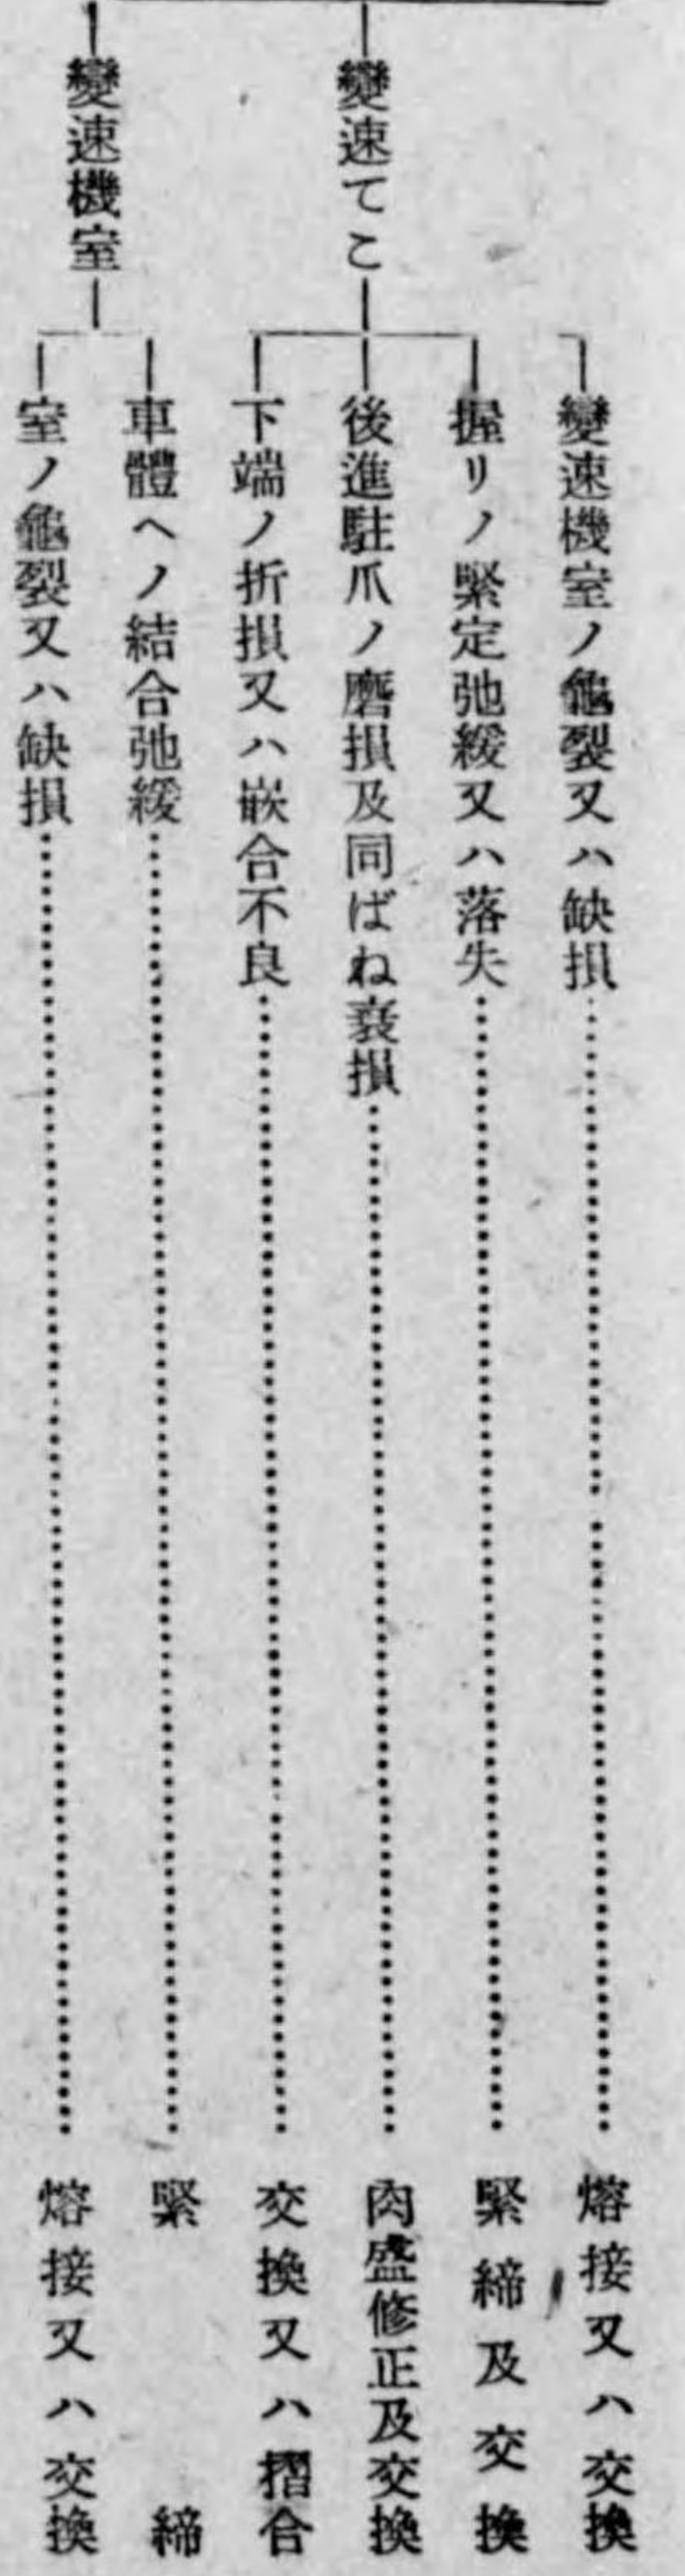 變速機室ノ龜裂又ハ缺損……熔接又ハ交換
變速てこ
握リノ緊定弛緩又ハ落失……緊締及交換
後進駐爪ノ磨損及同ばね衰損……肉盛修正及交換
下端ノ折損又ハ嵌合不良……交換又ハ摺合
變速機室
車體ヘノ結合弛緩……緊締
室ノ龜裂又ハ缺損……熔接又ハ交換